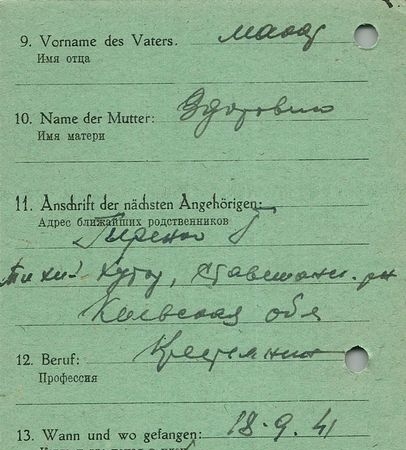 9. Vorname des Vaters.
Имя отца
10. Name der Mutter: Здоровило
Имя матери
11. Anschrift der nächsten Angehörigen:
Адрес ближайших родственников
Тихий Хутор, р-н
Киевская обл
12. Beruf: Крестьянин
Профессия
13. Wann und wo gefangen: 18.9.41